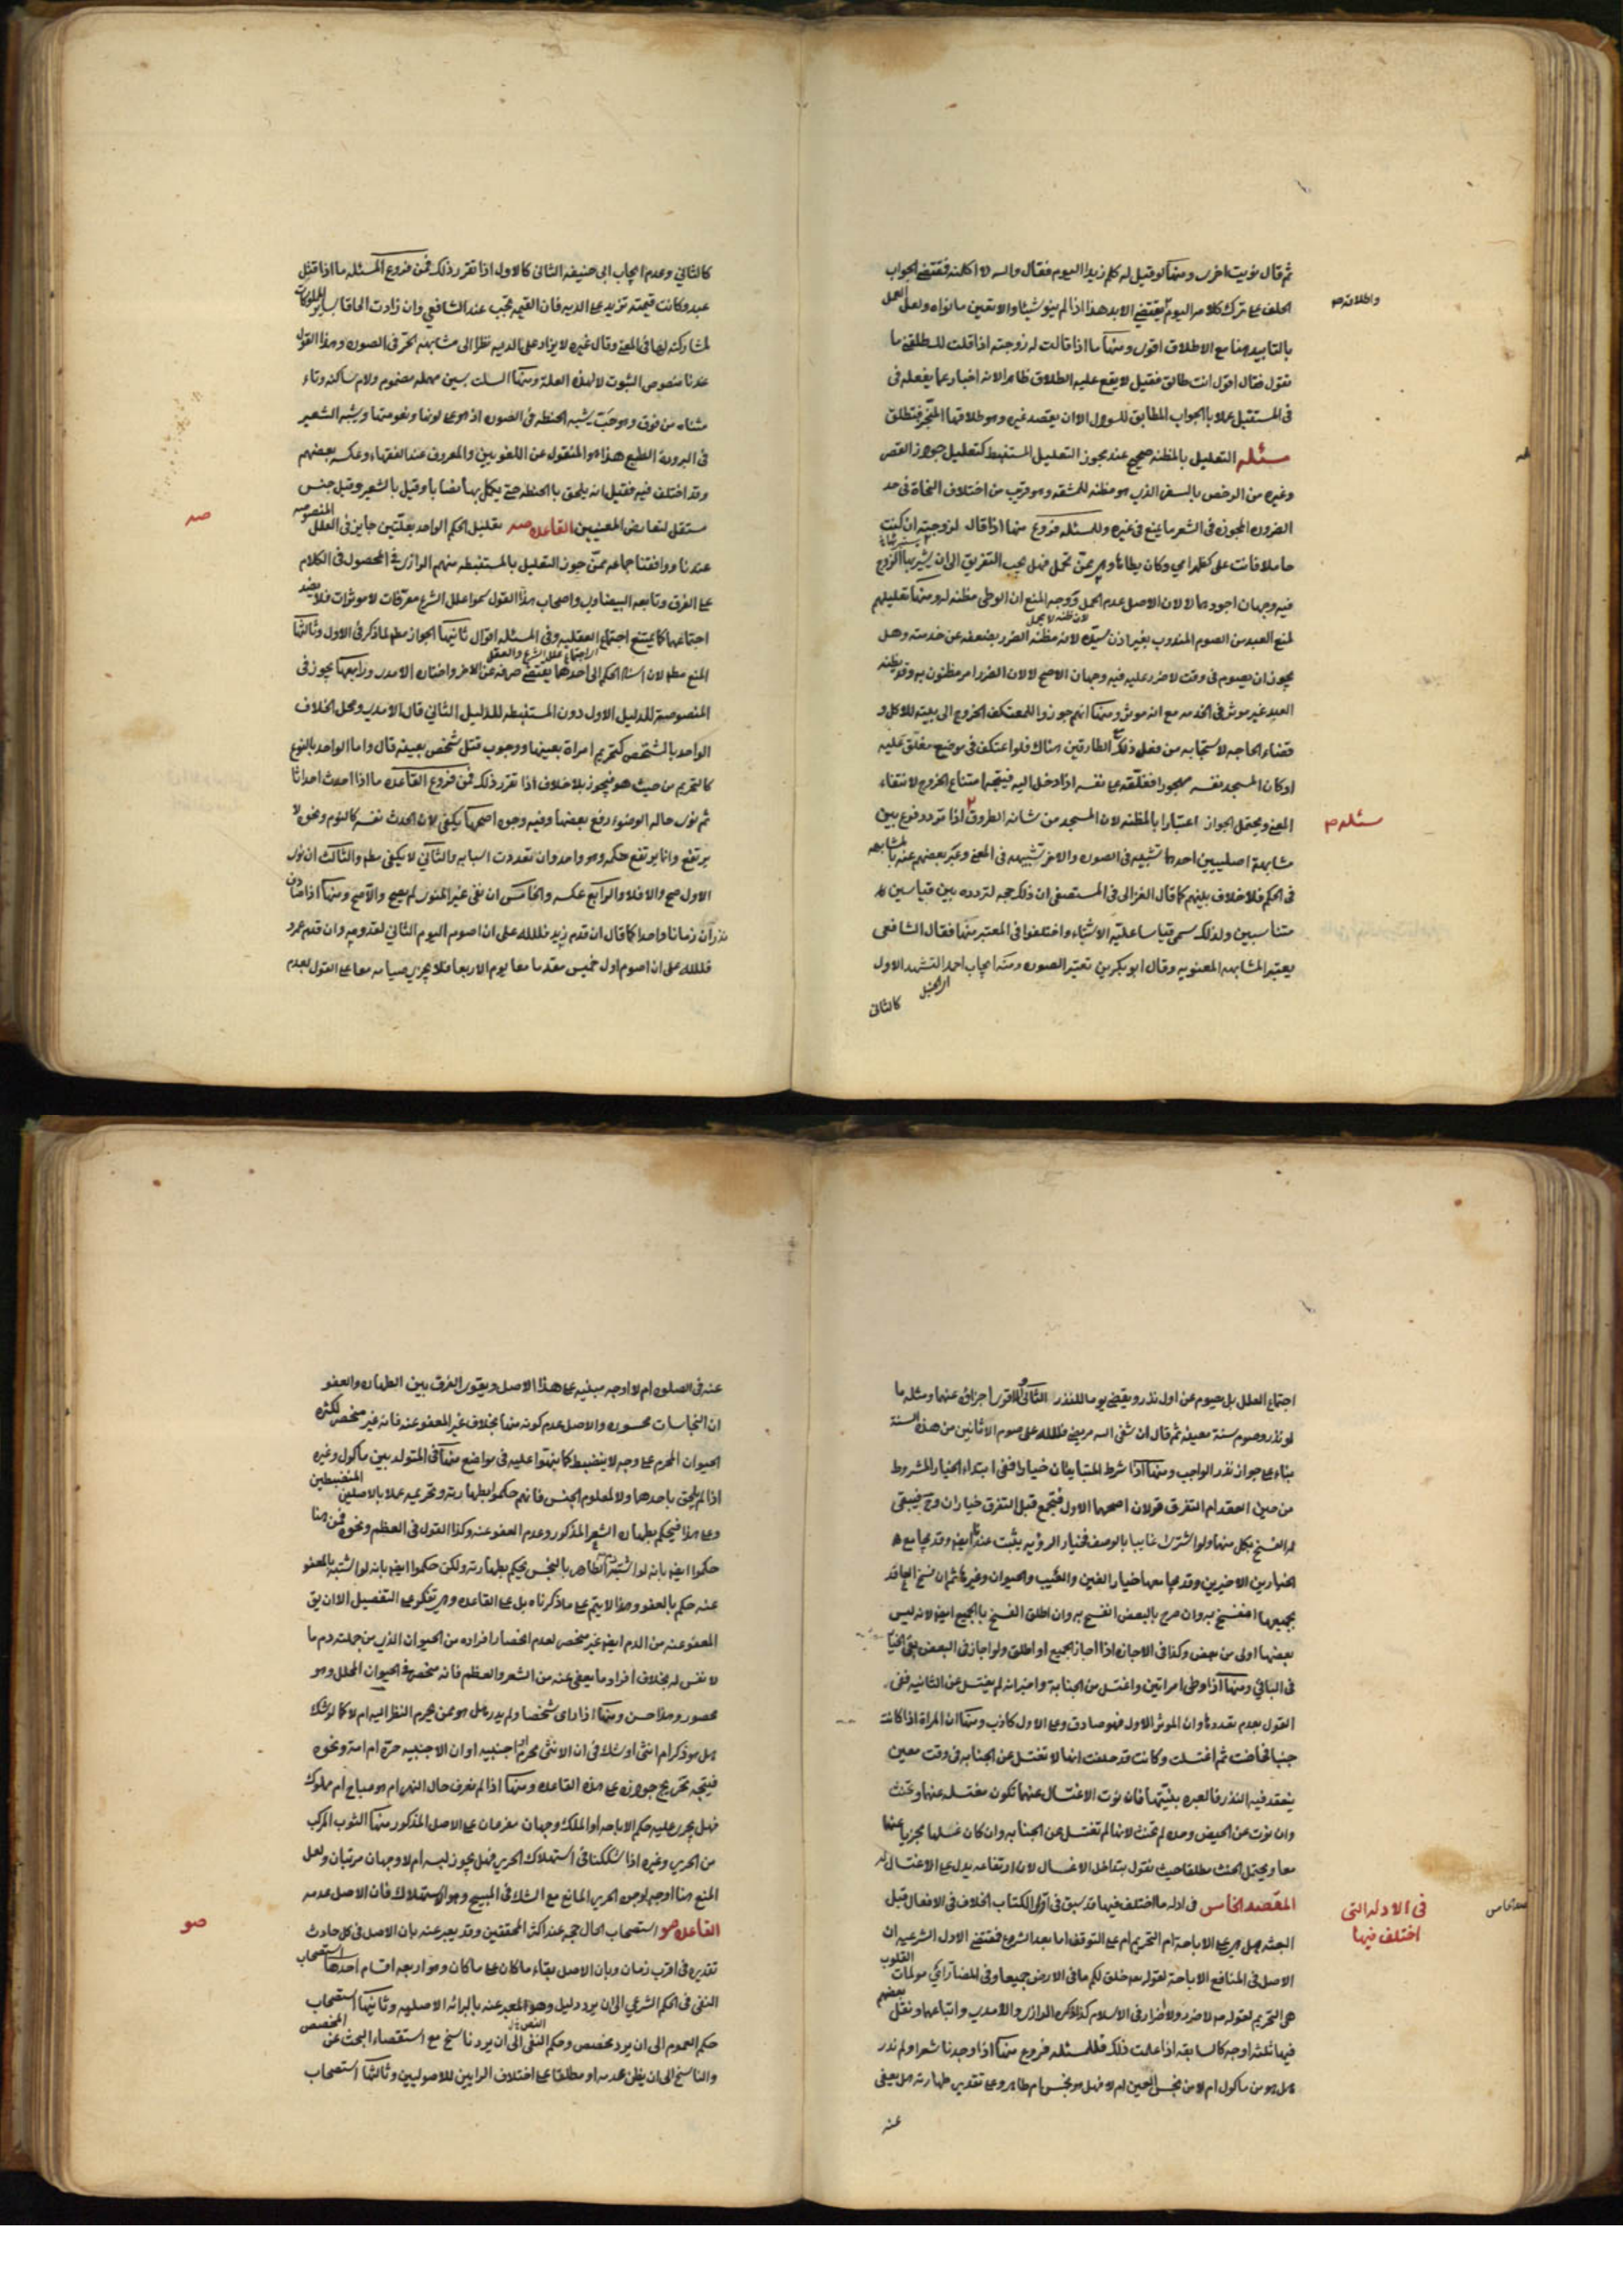 ثم قال نويت اخرى ومنها لو قيل له كلم زيدا اليوم فقال والله لا اكلمنه فمقتضى الجواب
الحلف على ترك كلامه اليوم يقتضي الابد هذا اذا لم ينو شيئا والا تعين ما نواه ولعل العمل
واطلاقه م
بالتابيد هنا مع الاطلاق اقوى ومنها ما اذا قالت له زوجته اذا قلت لك طلقني ما
تقول فقال اقول انت طالق فقيل لا يقع عليه الطلاق ظاهرا لانه اخبار عما يفعله في
في المستقبل عملا بالجواب المطابق للسؤال الا ان يقصد غيره وهو طلاقها المنجز فتطلق
مسئله التعليل بالمظنه صحيح عند مجوز التعليل المستنبط كتعليل جواز القصر
وغيره من الرخص بالسفر الذي هو مظنه للمشقه وهو قريب من اختلاف النحاة في حد
الضروره المجوزه في الشعر ما يمنع في غيره وللمسئله فروع منها اذا قال لزوجته ان كنت
حاملا فانت علي كظهر امي وكان يطاها وهي ممن تحمل فهل يجب التفريق الى ان يستبريها الزوج
فيه وجهان اجودهما لا لان الاصل عدم الحمل ووجه المنع ان الوطي مظنه له ومنها تعليلهم
لمنع العبد من الصوم المندوب بغير اذن سيده لانه مظنه الضرر بضعفه عن خدمته وهل
يجوز ان يصوم في وقت لا ضرر عليه فيه وجهان الاصح لا لان الضرر امر مظنون به وقد يظنه
العبد غير موثر في الخدمه مع انه موثر ومنها انهم جوزوا للمعتكف الخروج الى بيته للاكل و
قضاء الحاجه لاستحيائه من فعل ذلك مع الطارقين هناك فلو اعتكف في موضع مغلق عليه
او كان المسجد نفسه مهجورا فغلقه على نفسه اذا دخل اليه فيتجه امتناع الخروج لانتفاء
المعنى ويحتمل الجواز اعتبارا بالمظنه لان المسجد من شانه الطروق اذا تردد فرع بين
مسئله م
مشابهة اصليين احدهما تشبيه في الصوره والاخر تشبيهه في المعنى وعبر بعضهم عنه بالمشابهه
في الحكم فلا خلاف بينهم كما قال الغزالي في المستصفى ان ذلك حجه لتردده بين قياسين
متناسبين ولذلك سمي قياسا علية الاشباه واختلفوا في المعتبر منها فقال الشافعي
يعتبر المشابهه المعنويه وقال ابو بكر بن تعتبر الصوره ومنه ايجاب احمد التشهد الاول
كالثاني
كالثاني وعدم ايجاب ابي حنيفه الثاني كالاول اذا تقرر ذلك فمن فروع المسئله ما اذا قتل
عبد وكانت قيمته تزيد على الديه فان القيمه تجب عند الشافعي وان زادت الحاقا بساير المملوكات
لمشاركته لها في المعنى وقال غيره لا يزاد على الديه نظرا الى مشابهته الحر في الصوره وهذا القول
عندنا منصوص الثبوت لا لهذه العلة ومنها السلت بسين مهمله مضموم ولام ساكنه وتاء
مثناه من فوق وهو حب يشبه الحنطه في الصوره اذ هو على لونها ونعومتها ويشبه الشعير
في البرودة الطبع هذا هو المنقول عن اللغويين والمعروف عند الفقهاء وعكسه بعضهم
وقد اختلف فيه فقيل انه يلحق بالحنطه حتى يكمل بها نصابا وقيل بالشعير وقيل جنس
مستقل لتعارض المعنيين القاعده صه تعليل الحكم الواحد بعلتين جايز في العلل المنصوصه
صه
عندنا ووافقنا جماعه ممن جوز التعليل بالمستنبطه منهم الرازي في المحصول في الكلام
على الفرق وتابعه البيضاوي واصحاب هذا القول سموا علل الشرع معرفات لا موثرات فلا يضر
اجتماعها كما يمتنع اجتماع العقليه وفي المسئله اقوال ثانيها الجواز مطم لما ذكر في الاول وثالثها
المنع مطم لان اسناد الحكم الى احدها يقتضي صرفه عن الاخر واختاره الامدي ورابعها يجوز في
المنصوصة للدليل الاول دون المستنبطه للدليل الثاني قال الامدي ومحل الخلاف
الواحد بالشخص كتحريم امراة بعينها ووجوب قتل شخص بعينه قال واما الواحد بالنوع
كالتحريم من حيث هو فيجوز بلا خلاف اذا تقرر ذلك فمن فروع القاعده ما اذا احدث احداثا
ثم نوى حاله الوضوء رفع بعضها وفيه وجوه اصحها يكفي لان الحدث نفسه كالنوم ونحوه لا
يرتفع وانما يرتفع حكمه وهو واحد وان تعددت اسبابه والثاني لا يكفي مطم والثالث ان نوى
الاول صح والا فلا والرابع عكسه والخامس ان نفى غير المنوي لم يصح والا صح ومنها اذا صادف
نذران زمانا واحدا كما قال ان قدم زيد فلله على ان اصوم اليوم الثاني لقدومه وان قدم عمرو
فلله على ان اصوم اول خميس مقدمه فقدما معا يوم الاربعا فلا يجزي صيامه معا على القول بعدم
اجتماع العلل بل يصوم عن اول نذر ويقضي يوما للنذر الثاني والاقوى اجزاؤه عنهما ومثله ما
لو نذر صوم سنة معينه ثم قال ان شفى الله مريضي فلله علي صوم الاثانين من هذه السنة
بناء على جواز نذر الواجب ومنها اذا شرط المتبايعان خيارا ففي ابتداء الخيار المشروط
من حين العقد ام التفرق قولان اصحهما الاول فيجتمع قبل التفرق خياران وح فيبقى
له الفسخ بكل منهما ولو اشترى غايبا بالوصف فخيار الرؤيه يثبت عندنا ايضا وقد يجامع
الخيارين الاخيرين وقد يجامعها خيار الغبن والعيب والحيوان وغيرها ثم ان فسخ العاقد
بجميعها انفسخ به وان صرح بالبعض انفسخ به وان اطلق الفسخ بالجميع ايضا لانه ليس
بعضها اولى من بعض وكذا في الاجازه اذا اجاز الجميع او اطلق ولو اجاز في البعض بقي الخيار
في الباقي ومنها اذا وطى امراتين واغتسل من الجنابة واخبر انه لم يغتسل عن الثانيه ففي
القول بعدم تعدده وان الموثر الاول فهو صادق وعلى الاول كاذب ومنها ان المراة اذا كانت
جنبا فحاضت ثم اغتسلت وكانت قد حلفت انها لا تغتسل عن الجنابه في وقت معين
ينعقد فيه النذر فالعبره بنيتها فان نوت الاغتسال عنهما تكون مغتسله عنهما وتحنث
وان نوت عن الحيض وحده لم تحنث لانها لم تغتسل عن الجنابه وان كان غسلها مجزيا عنهما
معا ويحتمل الحنث مطلقا حيث نقول بتداخل الاغسال لان ارتفاعه يدل على الاغتسال له
المقصد الخامس في ادله ما اختلف فيها قد سبق في اول الكتاب الخلاف في الافعال قبل
في الادله التي
اختلف فيها
البعثه هل هي على الاباحة ام التحريم ام على التوقف اما بعد الشرع فمقتضى الادله الشرعيه ان
الاصل في المنافع الاباحة لقوله تعه خلق لكم ما في الارض جميعا وفي المضار اي مولمات القلوب
هي التحريم لقوله صه لا ضرر ولا اضرار في الاسلام كذا ذكره الرازي والامدي واتباعهما ونقل بعضهم
فيها ثلثه اوجه كالسابقه اذا علمت ذلك فللمسئله فروع منها اذا وجدنا شعرا ولم ندر
هل هو من ماكول ام لا من نجس العين ام لا فهل هو نجس ام طاهر وعلى تقدير طهارته هل يعفى
عنه
عنه في الصلوه ام لا اوجه مبنيه على هذا الاصل ويقوى الفرق بين الطهاره والعفو
ان النجاسات محصوره والاصل عدم كونه منها بخلاف غير المعفو عنه فانه غير منحصر لكثره
الحيوان المحرم على وجه لا ينضبط كما نبهوا عليه في مواضع منها في المتولد بين ماكول وغيره
اذا لم يلحق باحدها ولا لمعلوم الجنس فانهم حكموا بطهارته وتحريمه عملا بالاصلين المنضبطين
وعلى هذا فيحكم بطهاره الشعر المذكور وعدم العفو عنه وكذا القول في العظم ونحوه فمن هنا
حكموا ايضا بانه لو اشتبه الدم الطاهر بالنجس يحكم بطهارته ولكن حكموا ايضا بانه لو اشتبه بالمعفو
عنه حكم بالعفو وهذا لا يتم على ما ذكرناه بل على القاعده وهي تفكو على التفصيل الا ان يق
المعفو عنه من الدم ايضا غير منحصر لعدم انحصار افراده من الحيوان الذي من جملته دم ما
لا نفس له بخلاف افراد ما يعفى عنه من الشعر والعظم فانه منحصر في الحيوان المحلل وهو
محصور وهذا حسن ومنها اذا راى شخصا ولم يدر هل هو ممن يحرم النظر اليه ام لا كما لو شك
هل هو ذكر ام انثى او شك في ان الانثى محرم ام اجنبيه او ان الاجنبيه حرة ام امة ونحوه
فيتجه تخريج جوازه على هذه القاعده ومنها اذا لم نعرف حال النهر ام هو مباح ام مملوك
فهل يجري عليه حكم الاباحه او الملك وجهان مفرعان على الاصل المذكور منها الثوب المركب
من الحرير وغيره اذا شككنا في استهلاك الحرير فهل يجوز لبسه ام لا وجهان مرتبان ولعل
المنع هنا اوجه لوجود الحرير المانع مع الشك في المبيح وهو الاستهلاك فان الاصل عدمه
القاعده صو استصحاب الحال حجه عند اكثر المحققين وقد يعبر عنه بان الاصل في كل حادث
صو
تقديره في اقرب زمان وبان الاصل بقاء ما كان على ما كان وهو اربعه اقسام احدها استصحاب
النفي في الحكم الشرعي الى ان يرد دليل وهو المعبر عنه بالبرائه الاصليه وثانيها استصحاب
حكم العموم الى ان يرد مخصص وحكم النص الى ان يرد ناسخ مع استقصاء البحث عن المخصص
والناسخ الى ان يظن عدمه او مطلقا على اختلاف الرايين للاصوليين وثالثها استصحاب